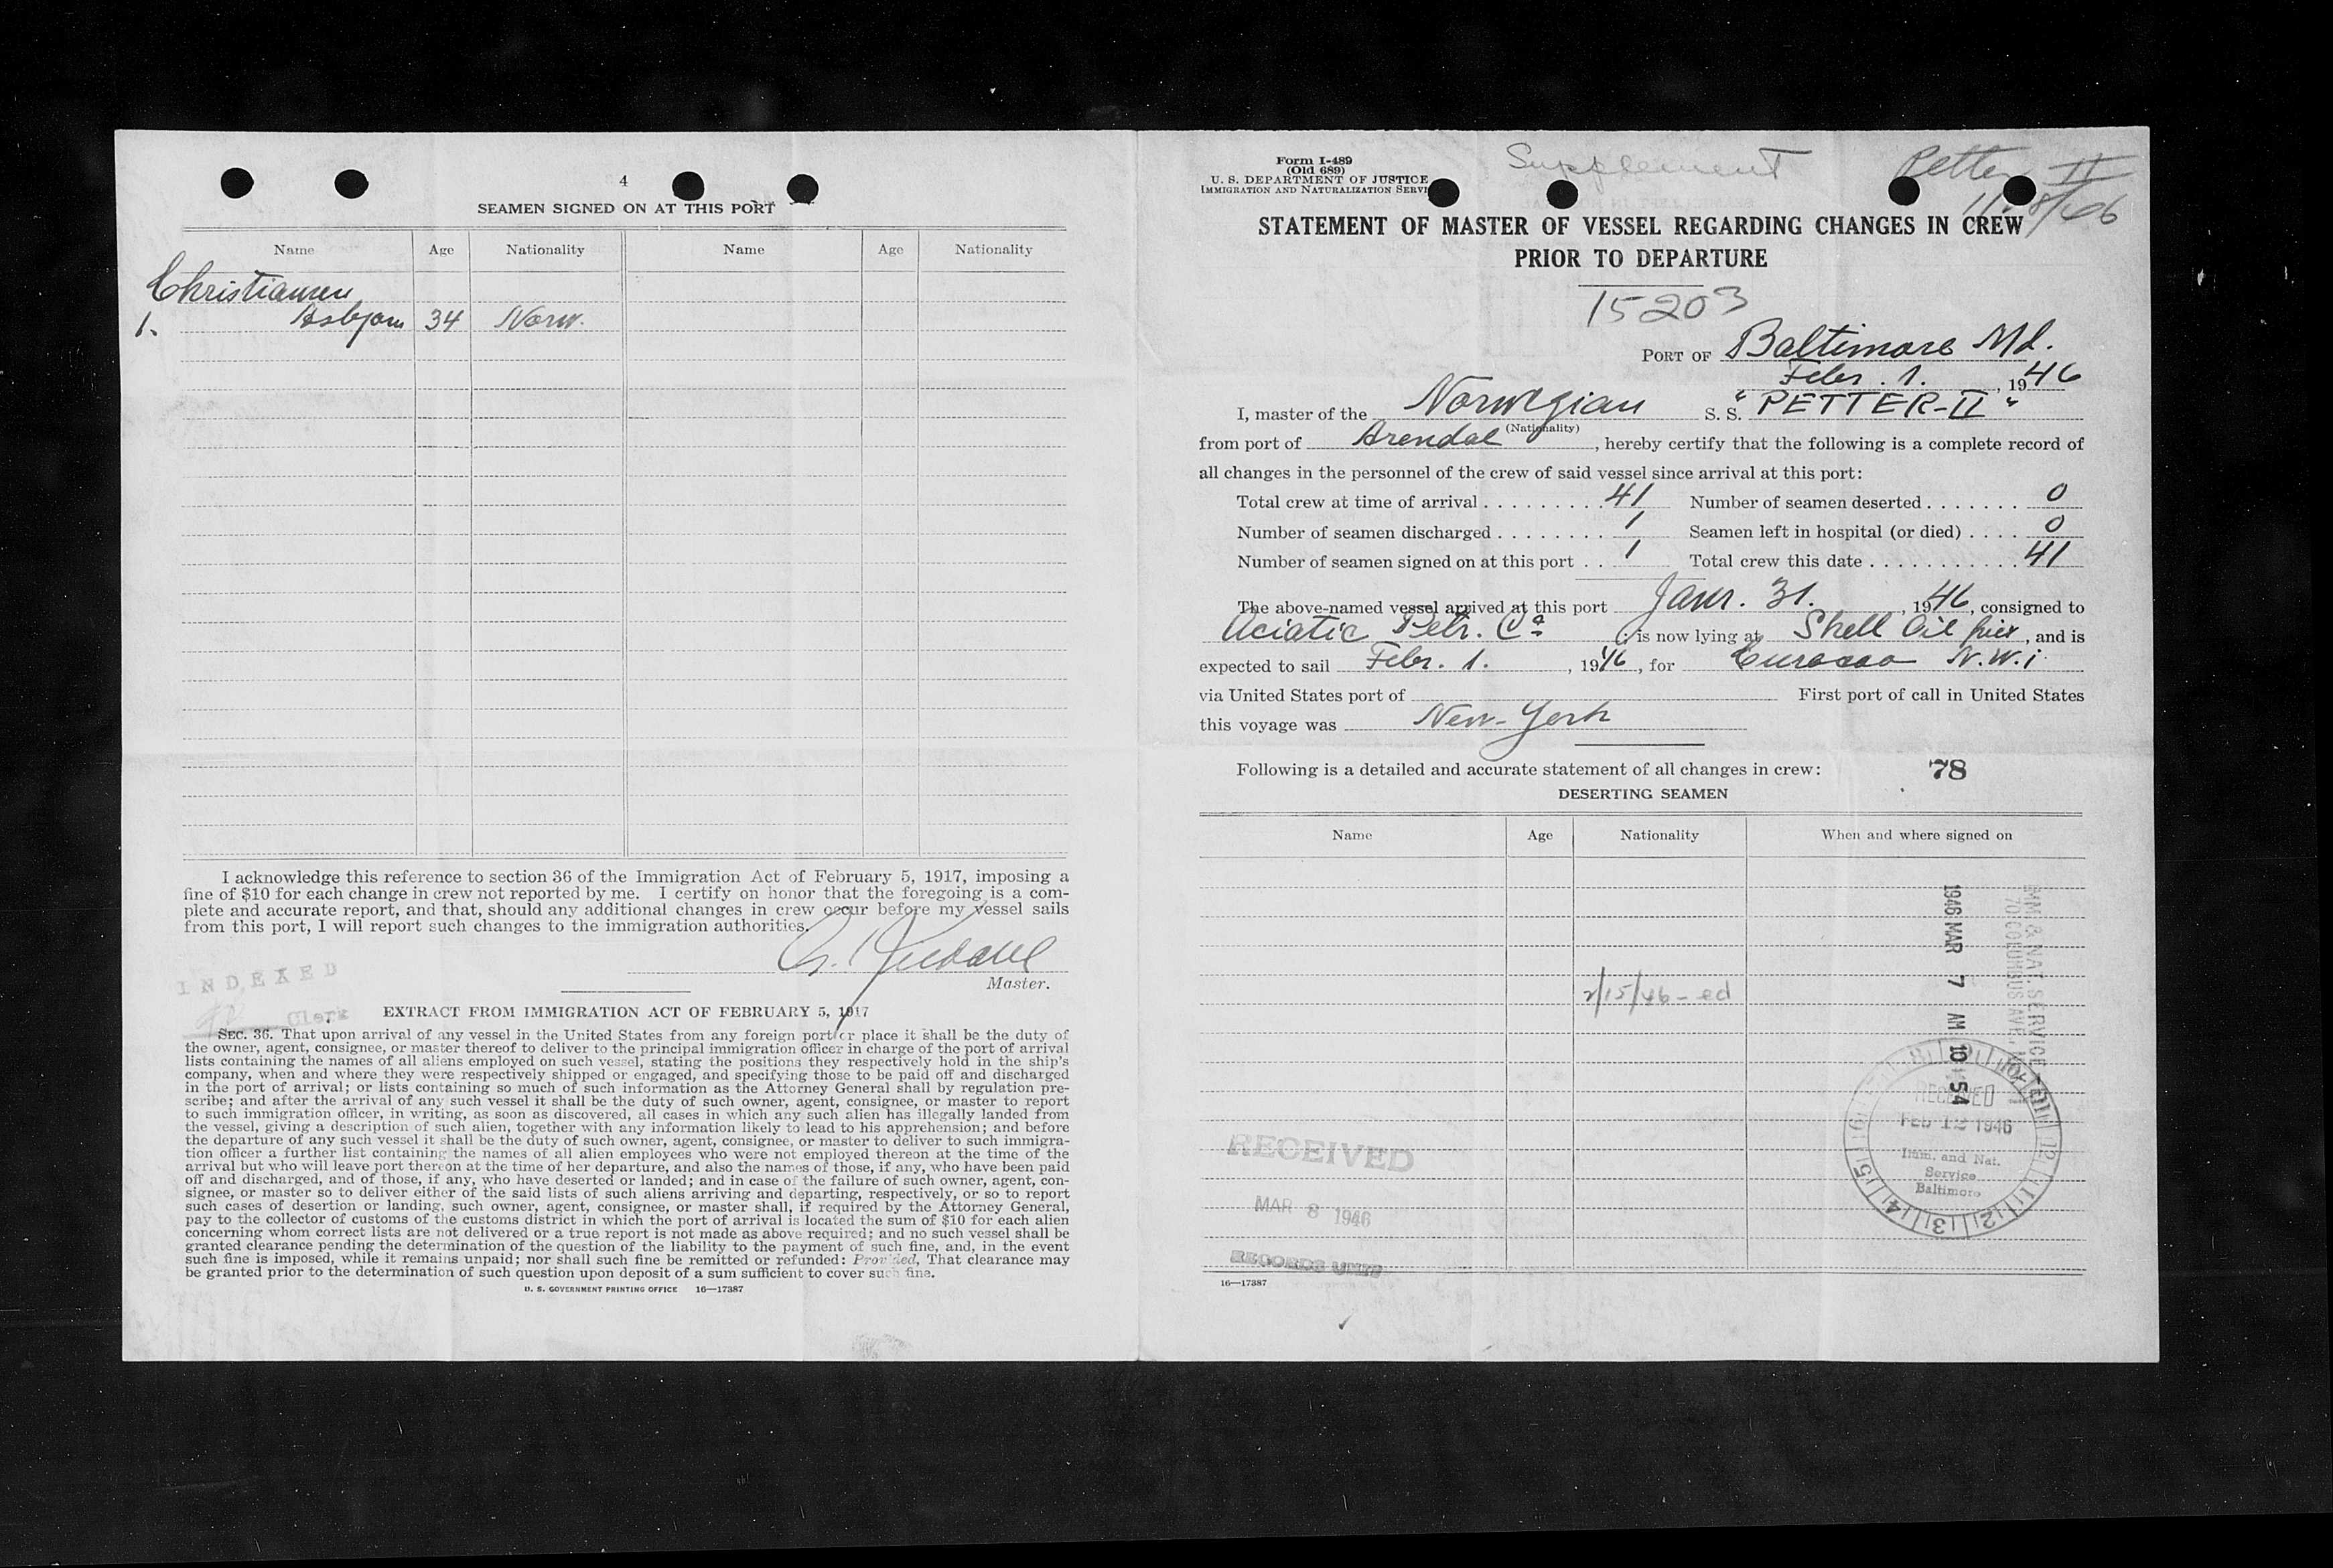 4
SEAMEN SIGNED ON AT THIS PORT
Name Age Nationality Name Age Nationality
Christiansen
1. Asbjørn 34 Norw.
I acknowledge this reference to section 36 of the Immigration Act of February 5, 1917, imposing a
fine of $10 for each change in crew not reported by me. I certify on honor that the foregoing is a com-
plete and accurate report, and that, should any additional changes in crew occur before my vessel sails
from this port, I will report such changes to the immigration authorities.
Master.
INDEXED
Clerk
EXTRACT FROM IMMIGRATION ACT OF FEBRUARY 5, 1917
SEC. 36. That upon arrival of any vessel in the United States from any foreign port or place it shall be the duty of
the owner, agent, consignee, or master thereof to deliver to the principal immigration officer in charge of the port of arrival
lists containing the names of all aliens employed on such vessel, stating the positions they respectively hold in the ship's
company, when and where they were respectively shipped or engaged, and specifying those to be paid off and discharged
in the port of arrival; or lists containing so much of such information as the Attorney General shall by regulation pre-
scribe; and after the arrival of any such vessel it shall be the duty of such owner, agent, consignee, or master to report
to such immigration officer, in writing, as soon as discovered, all cases in which any such alien has illegally landed from
the vessel, giving a description of such alien, together with any information likely to lead to his apprehension; and before
the departure of any such vessel it shall be the duty of such owner, agent, consignee, or master to deliver to such immigra-
tion officer a further list containing the names of all alien employees who were not employed thereon at the time of the
arrival but who will leave port thereon at the time of her departure, and also the names of those, if any, who have been paid
off and discharged, and of those, if any, who have deserted or landed; and in case of the failure of such owner, agent, con-
signee, or master so to deliver either of the said lists of such aliens arriving and departing, respectively, or so to report
such cases of desertion or landing, such owner, agent, consignee, or master shall, if required by the Attorney General,
pay to the collector of customs of the customs district in which the port of arrival is located the sum of $10 for each alien
concerning whom correct lists are not delivered or a true report is not made as above required; and no such vessel shall be
granted clearance pending the determination of the question of the liability to the payment of such fine, and, in the event
such fine is imposed, while it remains unpaid; nor shall such fine be remitted or refunded: Provided, That clearance may
be granted prior to the determination of such question upon deposit of a sum sufficient to cover such fine.
U. S. GOVERNMENT PRINTING OFFICE 16—17387
Form I-489
(Old 689)
U. S. DEPARTMENT OF JUSTICE
IMMIGRATION AND NATURALIZATION SERVI
Supplement
Petter II
STATEMENT OF MASTER OF VESSEL REGARDING CHANGES IN CREW
PRIOR TO DEPARTURE
15203
PORT OF Baltimore Md.
Febr. 1. , 1946
I, master of the Norwegian S. S. "PETTER-II"
(Nationality)
from port of Arendal , hereby certify that the following is a complete record of
all changes in the personnel of the crew of said vessel since arrival at this port:
Total crew at time of arrival . . . . . . . . . 41 Number of seamen deserted . . . . . . . 0
Number of seamen discharged . . . . . . . . 1 Seamen left in hospital (or died) . . . . 0
Number of seamen signed on at this port . . 1 Total crew this date . . . . . . . . . . . 41
The above-named vessel arrived at this port Janr. 31. , 1946, consigned to
Aciatic Petr. Co ; is now lying at Shell Oil pier , and is
expected to sail Febr. 1. , 1946 , for Curacao N.W.i
via United States port of First port of call in United States
this voyage was New-York
Following is a detailed and accurate statement of all changes in crew: 78
DESERTING SEAMEN
Name Age Nationality When and where signed on
2/15/46 - ed
IMM & NAT SERVICE
70 COLUMBUS AVE.
1946 MAR 7 AM 10 54
RECEIVED
FEB 12 1946
Imm. and Nat.
Service
Baltimore
RECEIVED
MAR 8 1946
RECORDS UNIT
16—17387